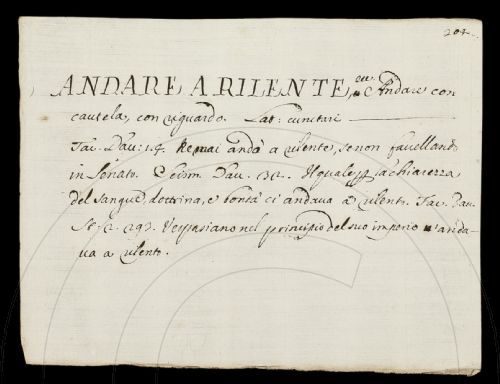 204
ANDARE A RILENTE, cu. Andare con
cautela, con riguardo. Lat: cunctari
Tac. Dav: 14. Re mai andò a rilente, se non favellando
in Senato. Scism. Dav. 32. Il quale p la chiarezza
del sangue, dottrina, e bontà ci andava a rilento. Tac. Dav.
St. 2. 293. Vespasiano nel principio del suo imperio v'anda-
va a rilento.